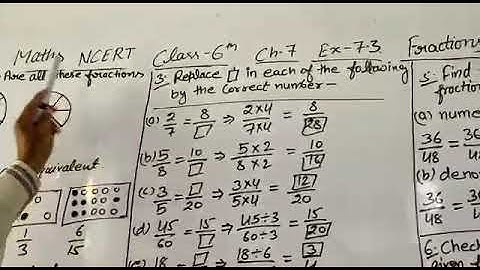 Maths NCERT Class-6th Ch-7 Ex-7.3 Fractions
Are all these fractions
equivalent
1/3 6/15
3. Replace □ in each of the following
by the correct number-
(a) 2/7 = 8/□ ⇒ 2×4/7×4 = 8/28
(b) 5/8 = 10/□ ⇒ 5×2/8×2 = 10/16
(c) 3/5 = □/20 ⇒ 3×4/5×4 = 12/20
(d) 45/60 = 15/□ ⇒ 45÷3/60÷3 = 15/20
(e) 18 = □ ⇒ 18÷6 = 3
5. Find
fraction
(a) nume
36/48 = 36
(b) deno
36/48 = 36
6. Check
given f